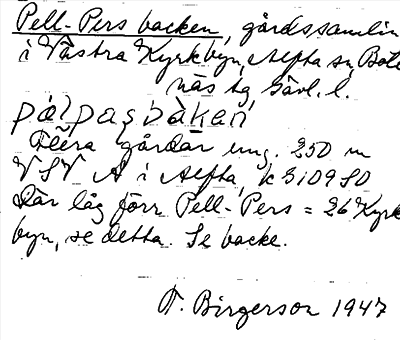 Pell-Pers backen, gårdssamlin
i Västra Kyrkbyn, Alfta sn, Boll
näs tg Gävl. l.
pælpaʂbàkɐn
Flera gårdar ung. 250 m
VSV A i Alfta, k 310980
Där låg förr Pell-Pers = 26 Kyrk
byn, se detta. Se backe.
F. Birgerson 1947